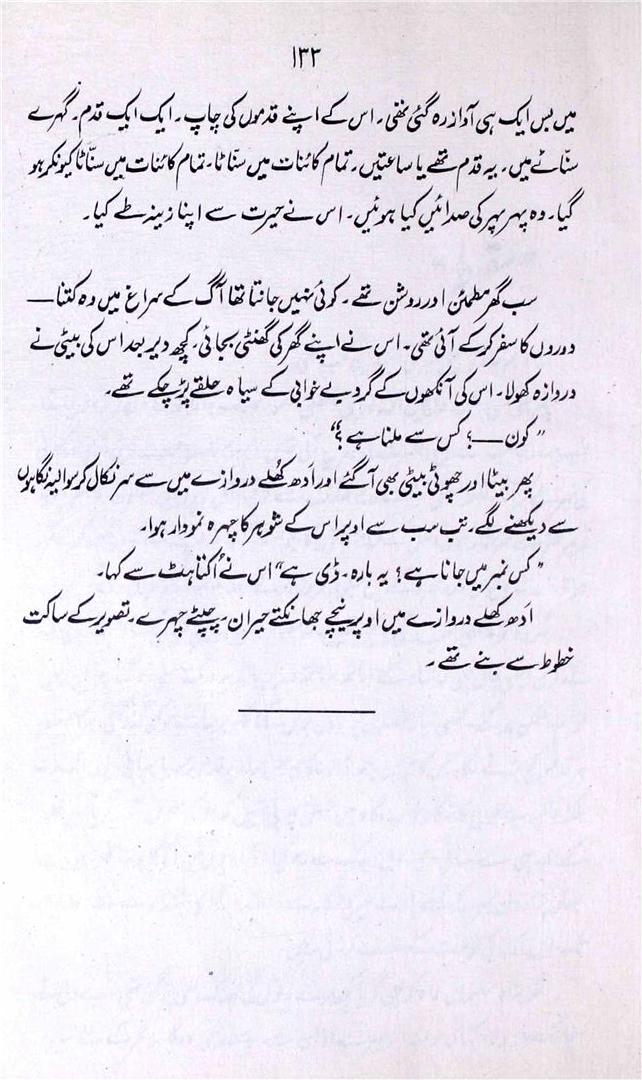 ۱۳۲
میں بس ایک ہی آواز رہ گئی تھی۔ اس کے اپنے قدموں کی چاپ۔ ایک ایک قدم۔ گہرے
سنّاٹے میں۔ یہ قدم تھے یا ساعتیں۔ تمام کائنات میں سنّاٹا۔ تمام کائنات میں سنّاٹا کیونکر ہو
گیا۔ وہ پہر پہر کی صدائیں کیا ہوئیں۔ اس نے حیرت سے اپنا زینہ طے کیا۔
سب گھر مطمئن اور روشن تھے۔ کوئی نہیں جانتا تھا آگ کے سراغ میں وہ کتنا—
دوروں کا سفر کر کے آئی تھی۔ اس نے اپنے گھر کی گھنٹی بجائی۔ کچھ دیر بعد اس کی بیٹی نے
دروازہ کھولا۔ اس کی آنکھوں کے گرد بے خوابی کے سیاہ حلقے پڑ چکے تھے۔
"کون—؟ کس سے ملنا ہے؟"
پھر بیٹا اور چھوٹی بیٹی بھی آ گئے اور اَدھ کھُلے دروازے میں سے سر نکال کر سوالیہ نگاہوں
سے دیکھنے لگے۔ تب سب سے اوپر اس کے شوہر کا چہرہ نمودار ہوا۔
"کس نمبر میں جانا ہے؟ یہ بارہ۔ ڈی ہے" اس نے اُکتاہٹ سے کہا۔
اَدھ کھلے دروازے میں اوپر نیچے جھانکتے حیران چپٹے چہرے۔ تصویر کے ساکت
خطوط سے بنے تھے۔